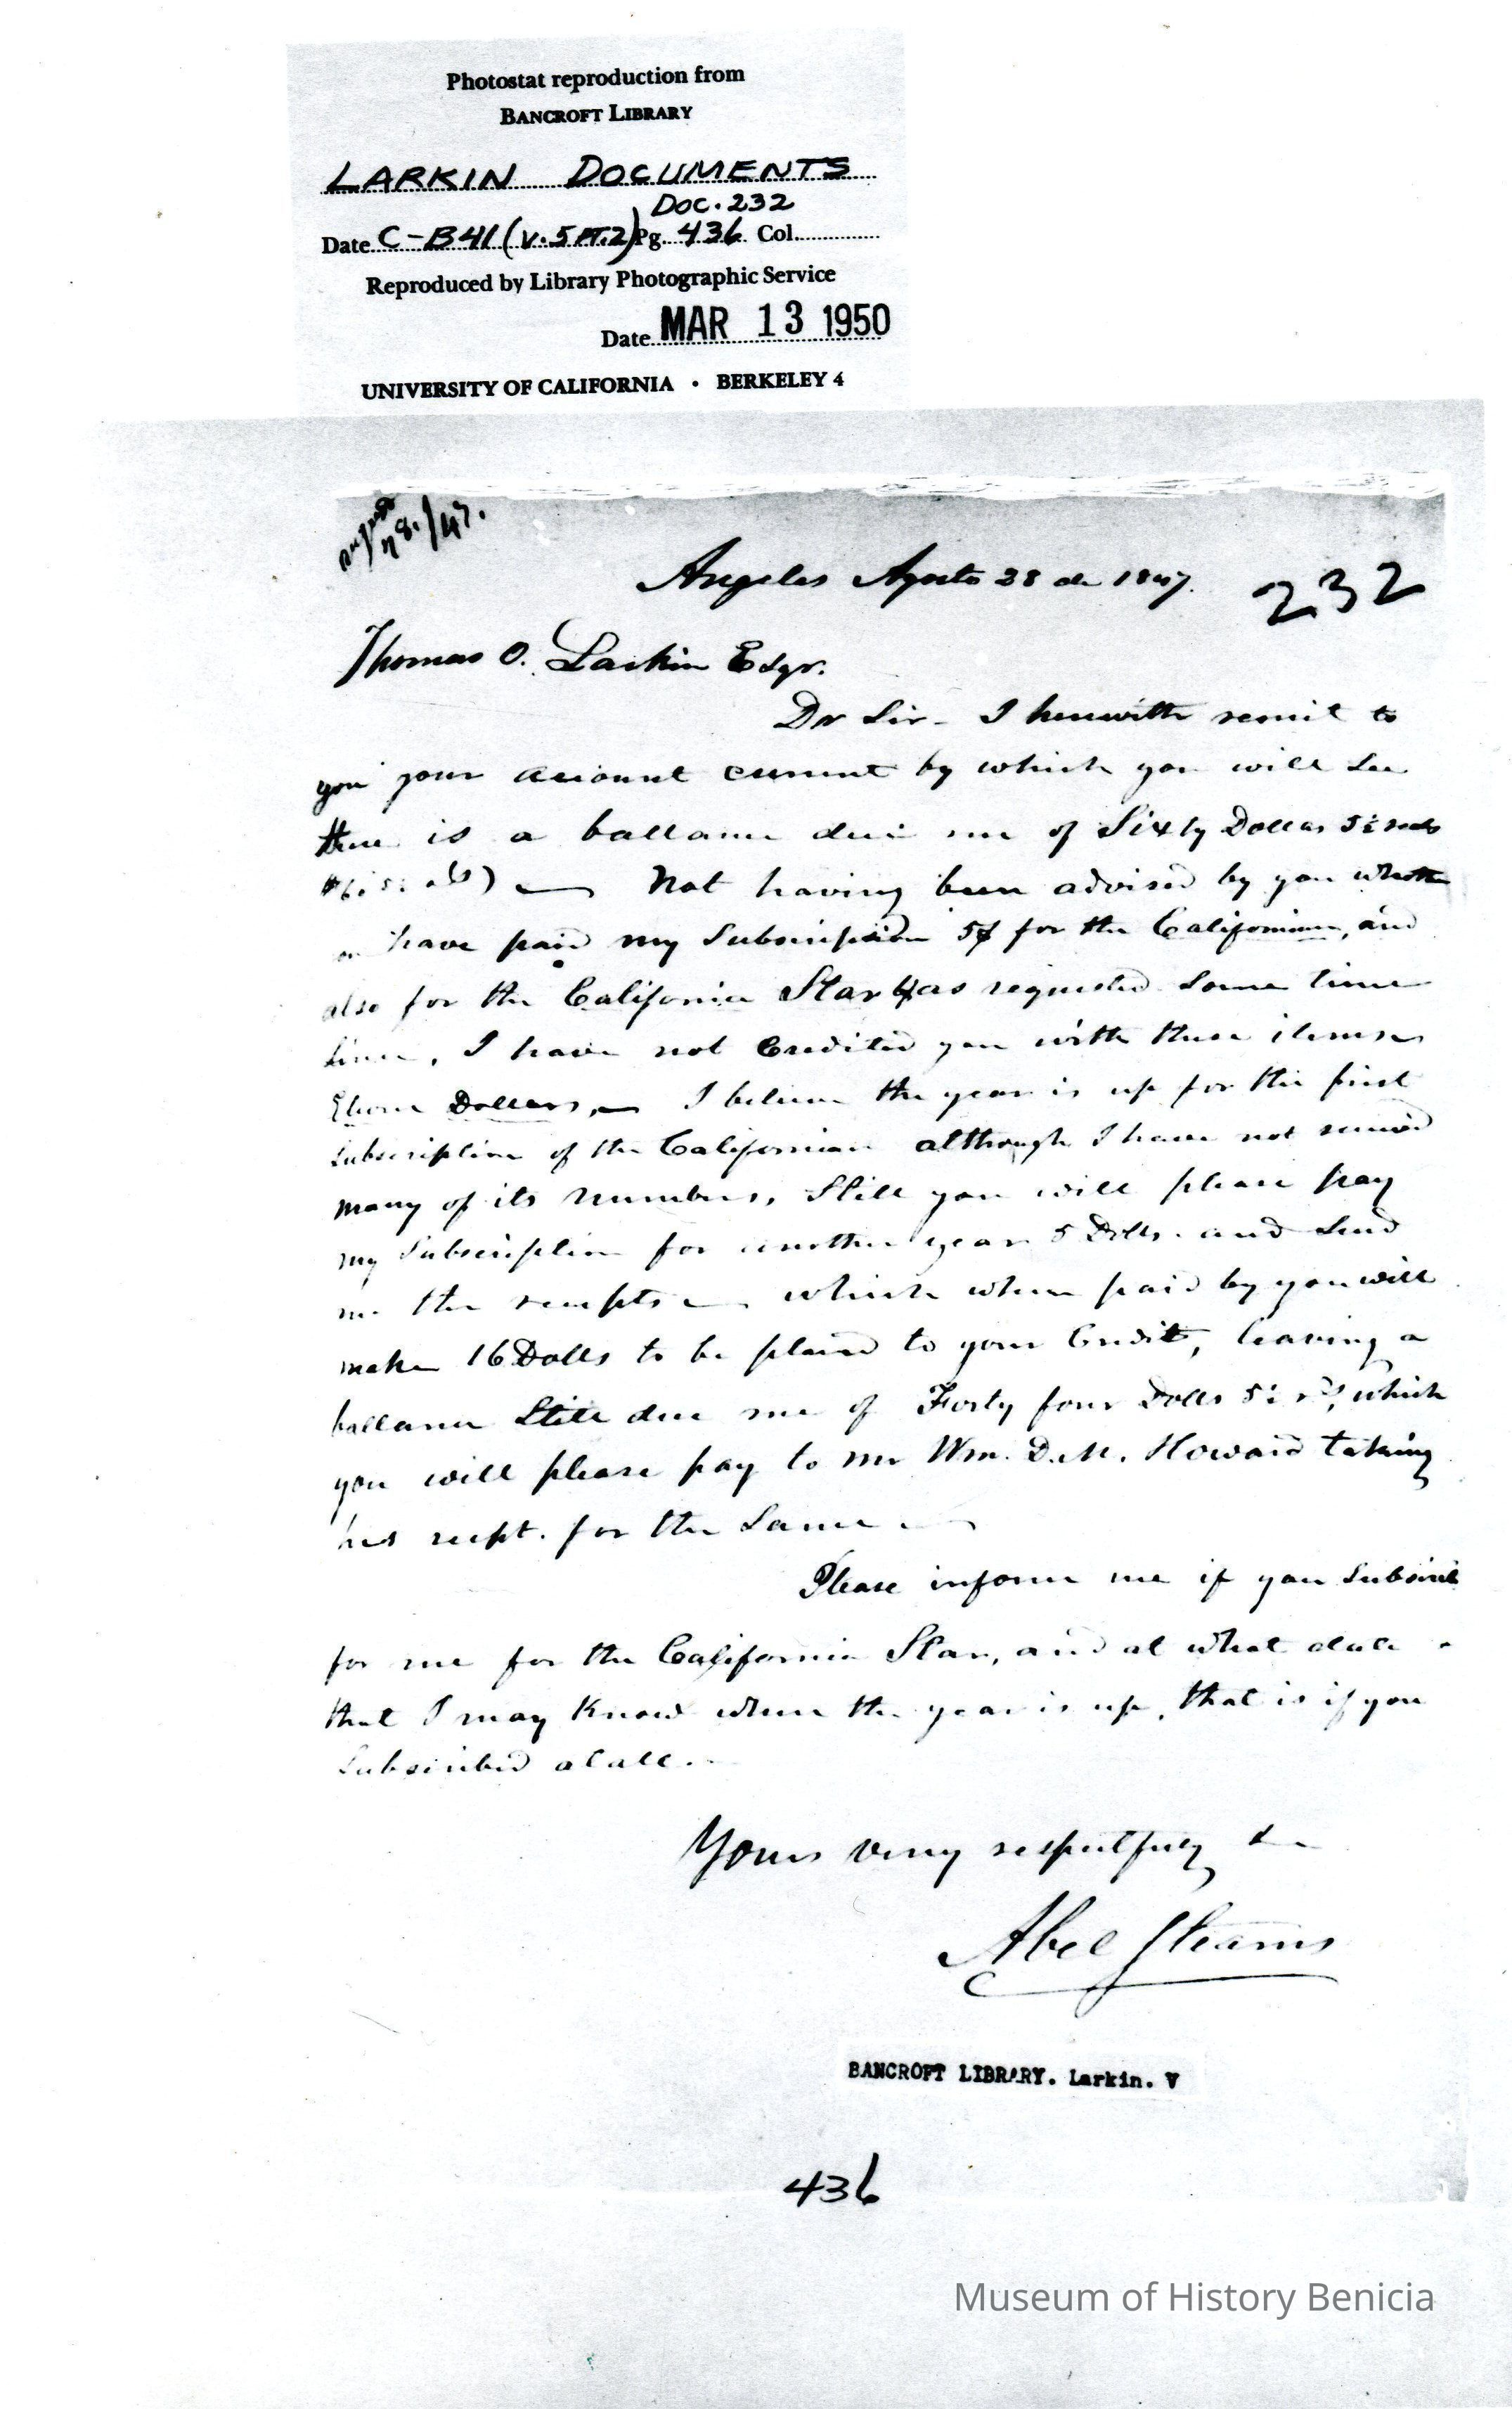 Photostat reproduction from
BANCROFT LIBRARY
LARKIN DOCUMENTS
Doc. 232
Date C-B41 (v.5 PT.2) Pg. 436 Col.
Reproduced by Library Photographic Service
Date MAR 13 1950
UNIVERSITY OF CALIFORNIA • BERKELEY 4
August
28./47.
Angeles Agosto 28 de 1847.
232
Thomas O. Larkin Esqr.
Dr Sir - I herewith remit to
you your account current by which you will see
there is a ballance due me of Sixty Dollars 5½ reals
Not having been advised by you whether
have paid my Subscription 5$ for the Californian, and
also for the California Star 6$ as requested some time
since, I have not Credited you with these items
Eleven Dollars, I believe the year is up for the first
subscription of the Californian although I have not received
many of its numbers, Still you will please pay
my Subscription for another year 5 Dolls. and send
me the receipts which when paid by you will
make 16 Dolls to be placed to your Credit, leaving a
ballance Still due me of Forty four Dolls 5½ rs, which
you will please pay to Mr Wm. D. M. Howard taking
his recpt. for the Same
Please inform me if you subscribe
for me for the California Star, and at what date
that I may Know when the year is up, that is if you
Subscribed at all.
Yours very respectfuly &c
Abel Stearns
BANCROFT LIBRARY. Larkin. V
436
Museum of History Benicia